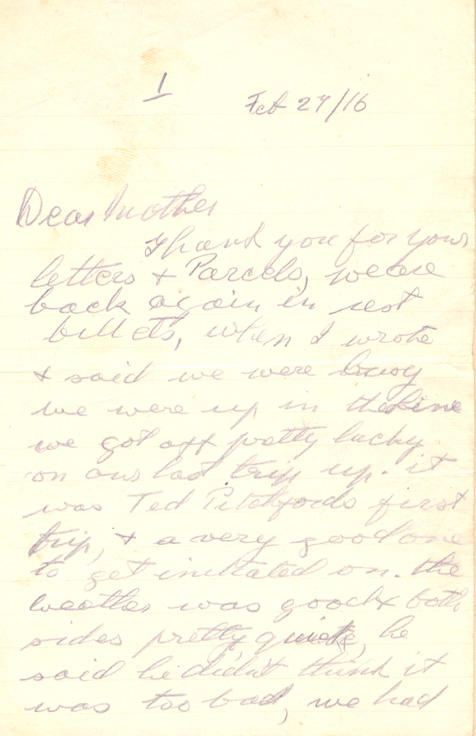 1
Feb 27/16
Dear Mother
Thank you for your
letters & Parcels, we are
back again in rest
billets, when I wrote
& said we were busy
we were up in the line
we got off pretty lucky
on our last trip up. it
was Ted Pitchfords first
trip, & a very good one
to get initiated on. the
weather was good & both
sides pretty quiet, he
said he didn't think it
was too bad, we had